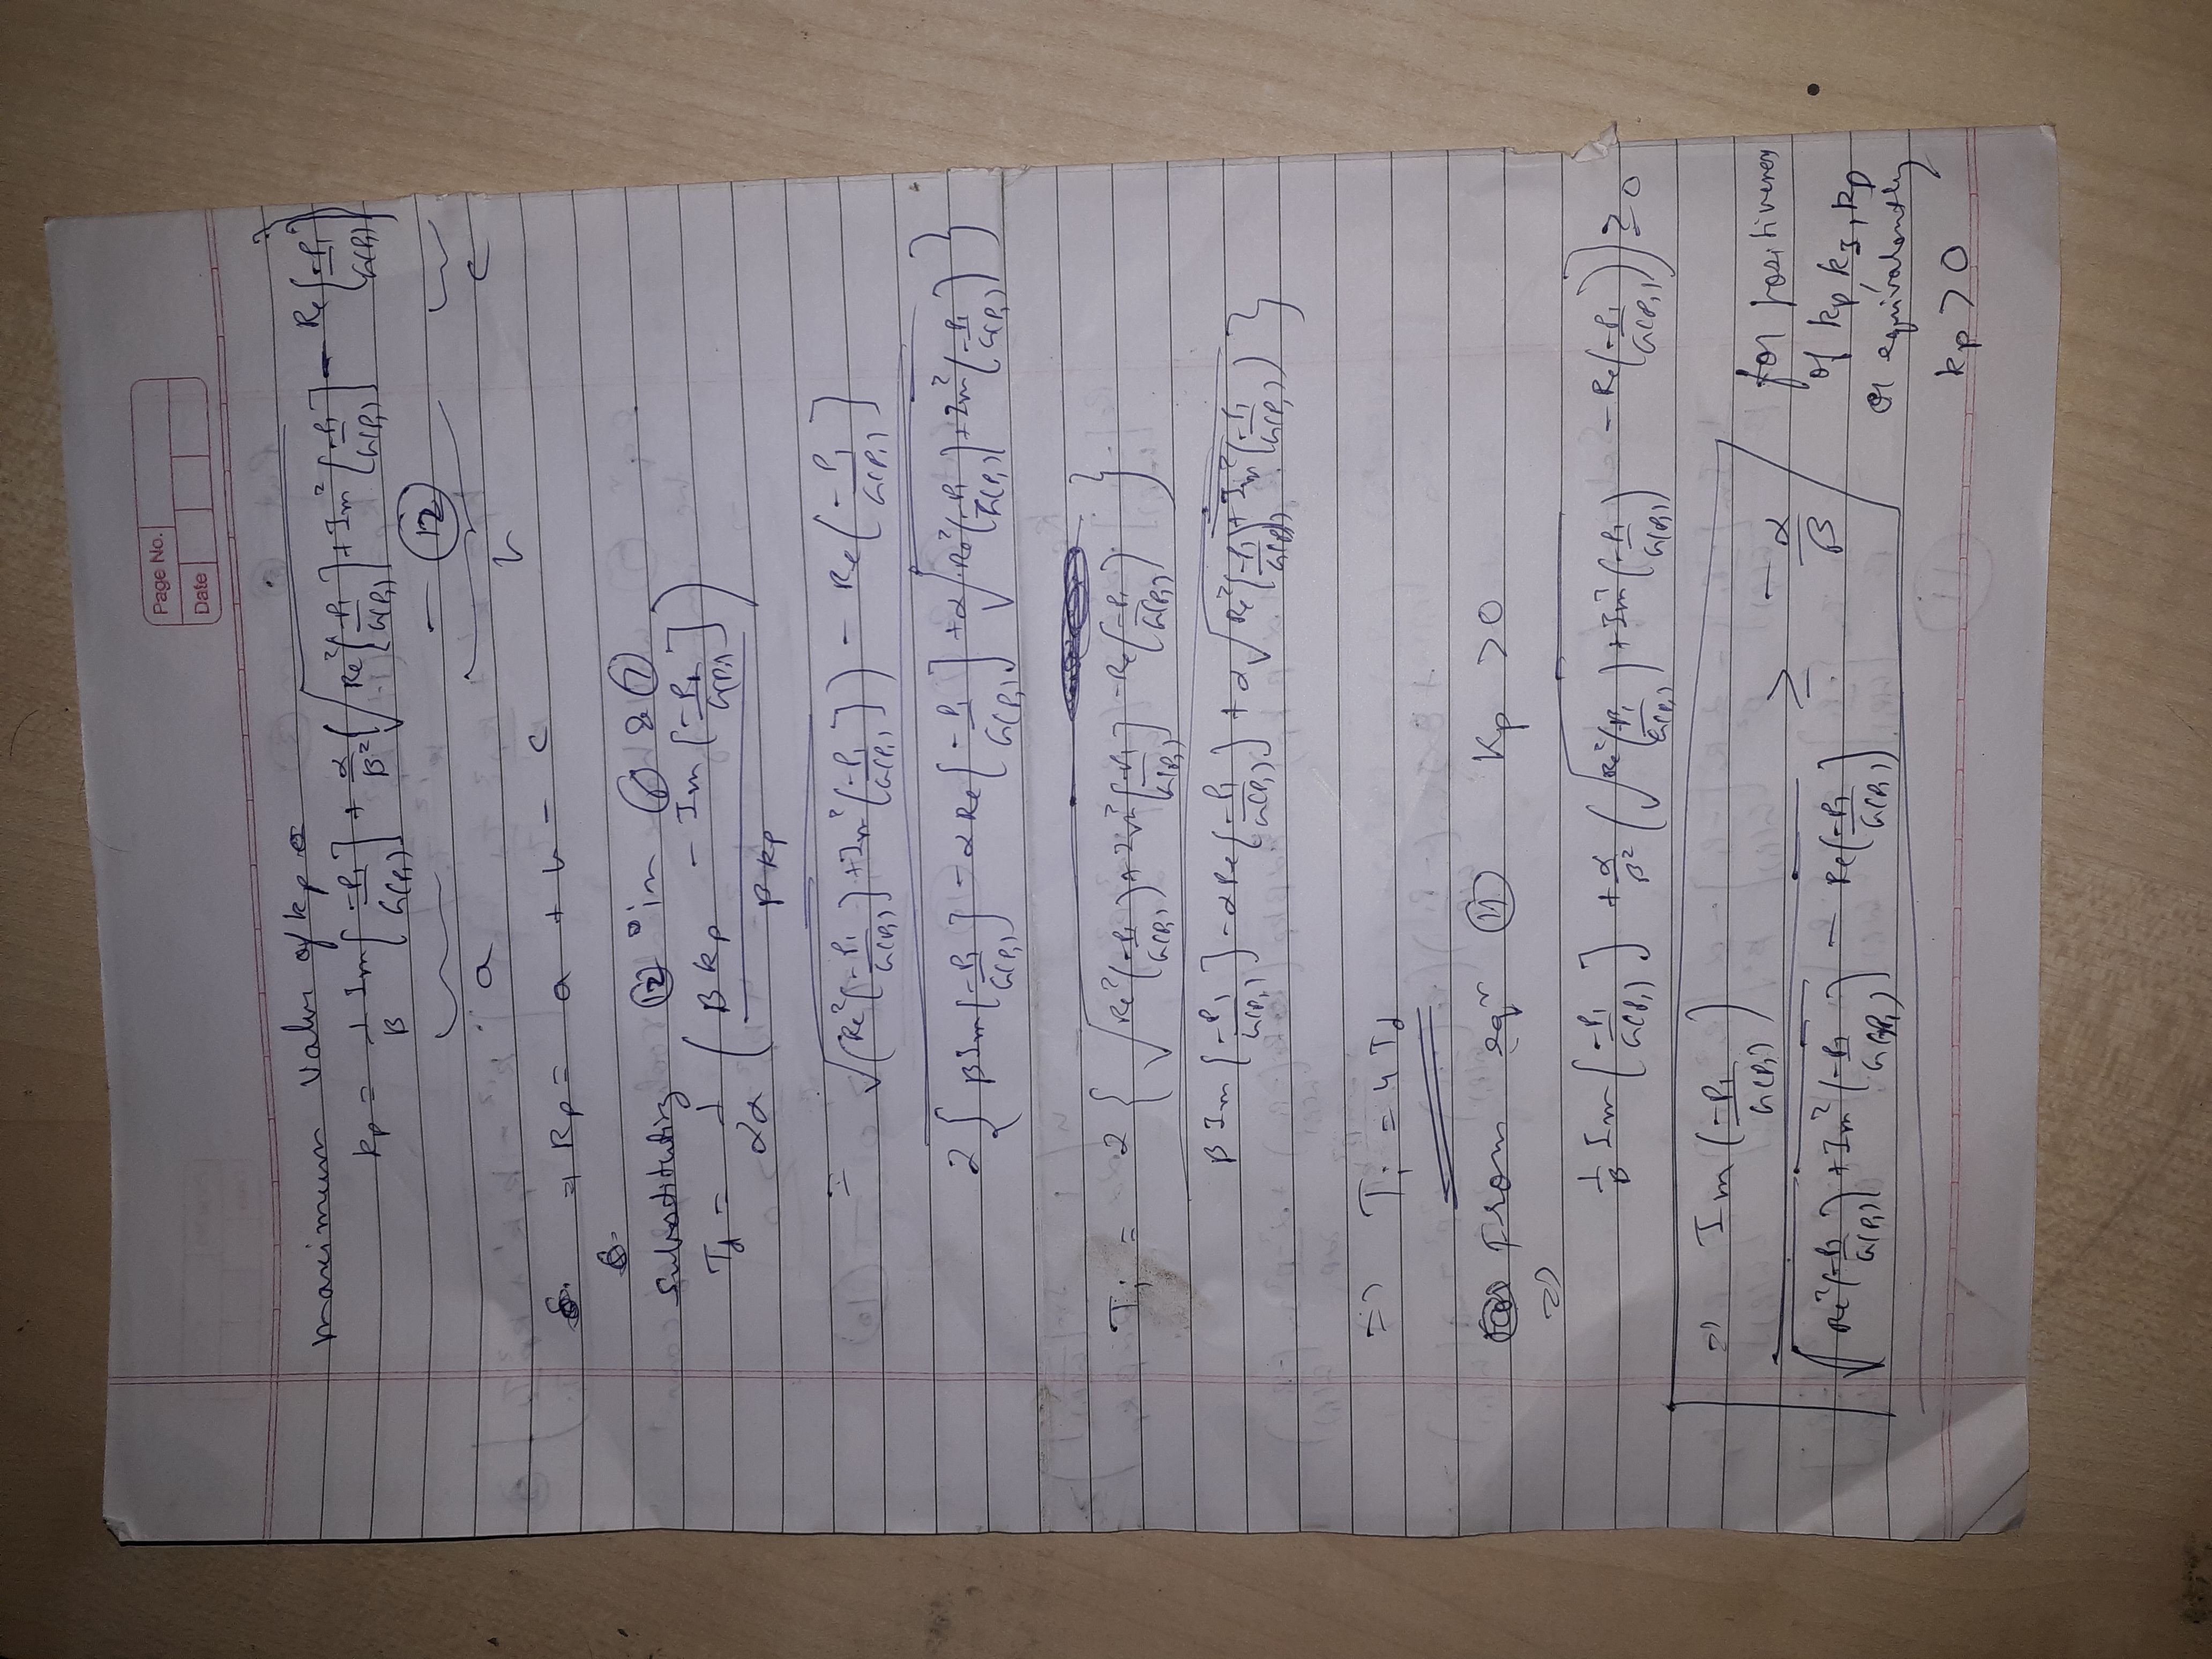 Page No.
Date
maximum value of kp
kp = 1/β Im[-P1/G(P1)] + α/β² {√(Re²[-P1/G(P1)] + Im²[-P1/G(P1)]) - Re[-P1/G(P1)]}
- (12)
a b c
⇒ kp = a + b - c
Substituting (12) in & (7)
Td = 1/2α ( (β kp - Im[-P1/G(P1)]) / β kp )
= √(Re²[-P1/G(P1)] + Im²[-P1/G(P1)]) - Re[-P1/G(P1)]
2{ β Im[-P1/G(P1)] - α Re[-P1/G(P1)] + α√(Re²(-P1/G(P1)) + Im²(-P1/G(P1))) }
Ti = 2 { √(Re²(-P1/G(P1)) + Im²[-P1/G(P1)]) - Re[-P1/G(P1)] }
β Im[-P1/G(P1)] - α Re[-P1/G(P1)] + α√(Re²(-P1/G(P1)) + Im²(-P1/G(P1))) }
⇒ Ti = 4 Td
From eqn (11) Kp > 0
⇒
1/β Im[-P1/G(P1)] + α/β² (√(Re²(-P1/G(P1)) + Im²(-P1/G(P1))) - Re(-P1/G(P1))) ≥ 0
⇒ Im(-P1/G(P1))
≥ -α/β
√(Re²(-P1/G(P1)) + Im²(-P1/G(P1))) - Re(-P1/G(P1))
for positiveness
of kp, kI, kD
or equivalently
kp > 0